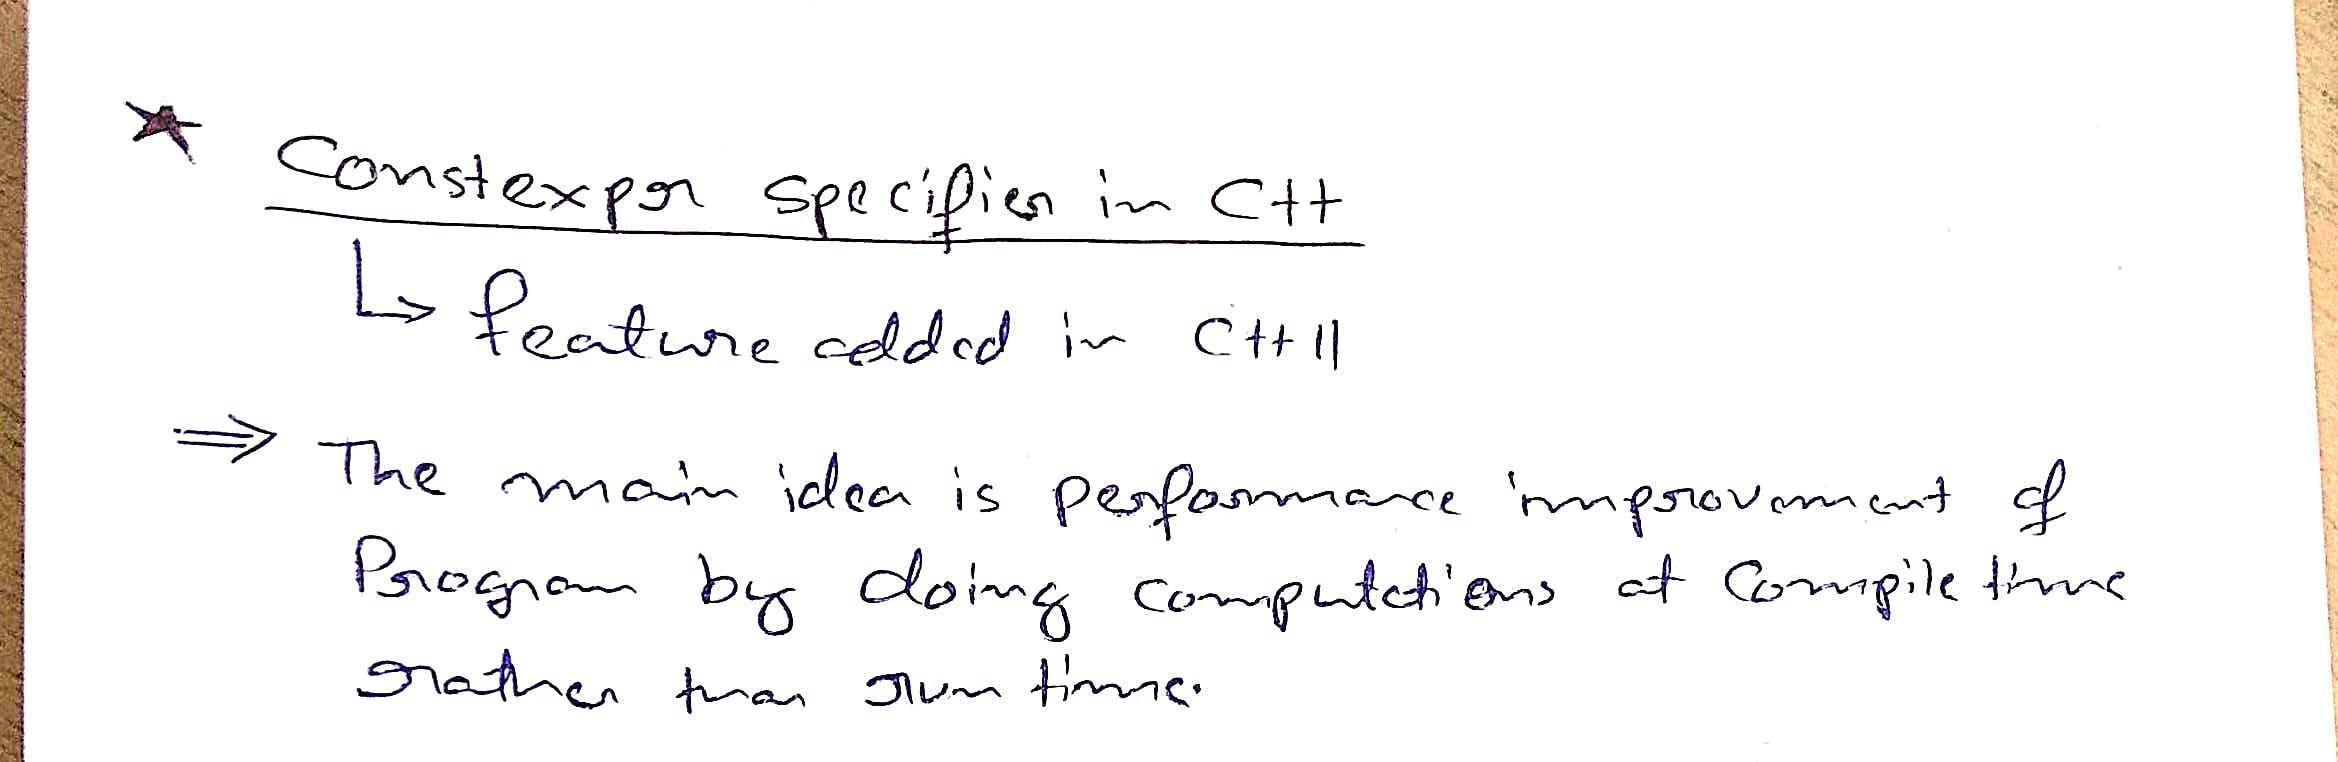 ★ Constexpr specifier in C++
↳ feature added in C++11
⇒ The main idea is performance improvement of
Program by doing computations at Compile time
rather than run time.